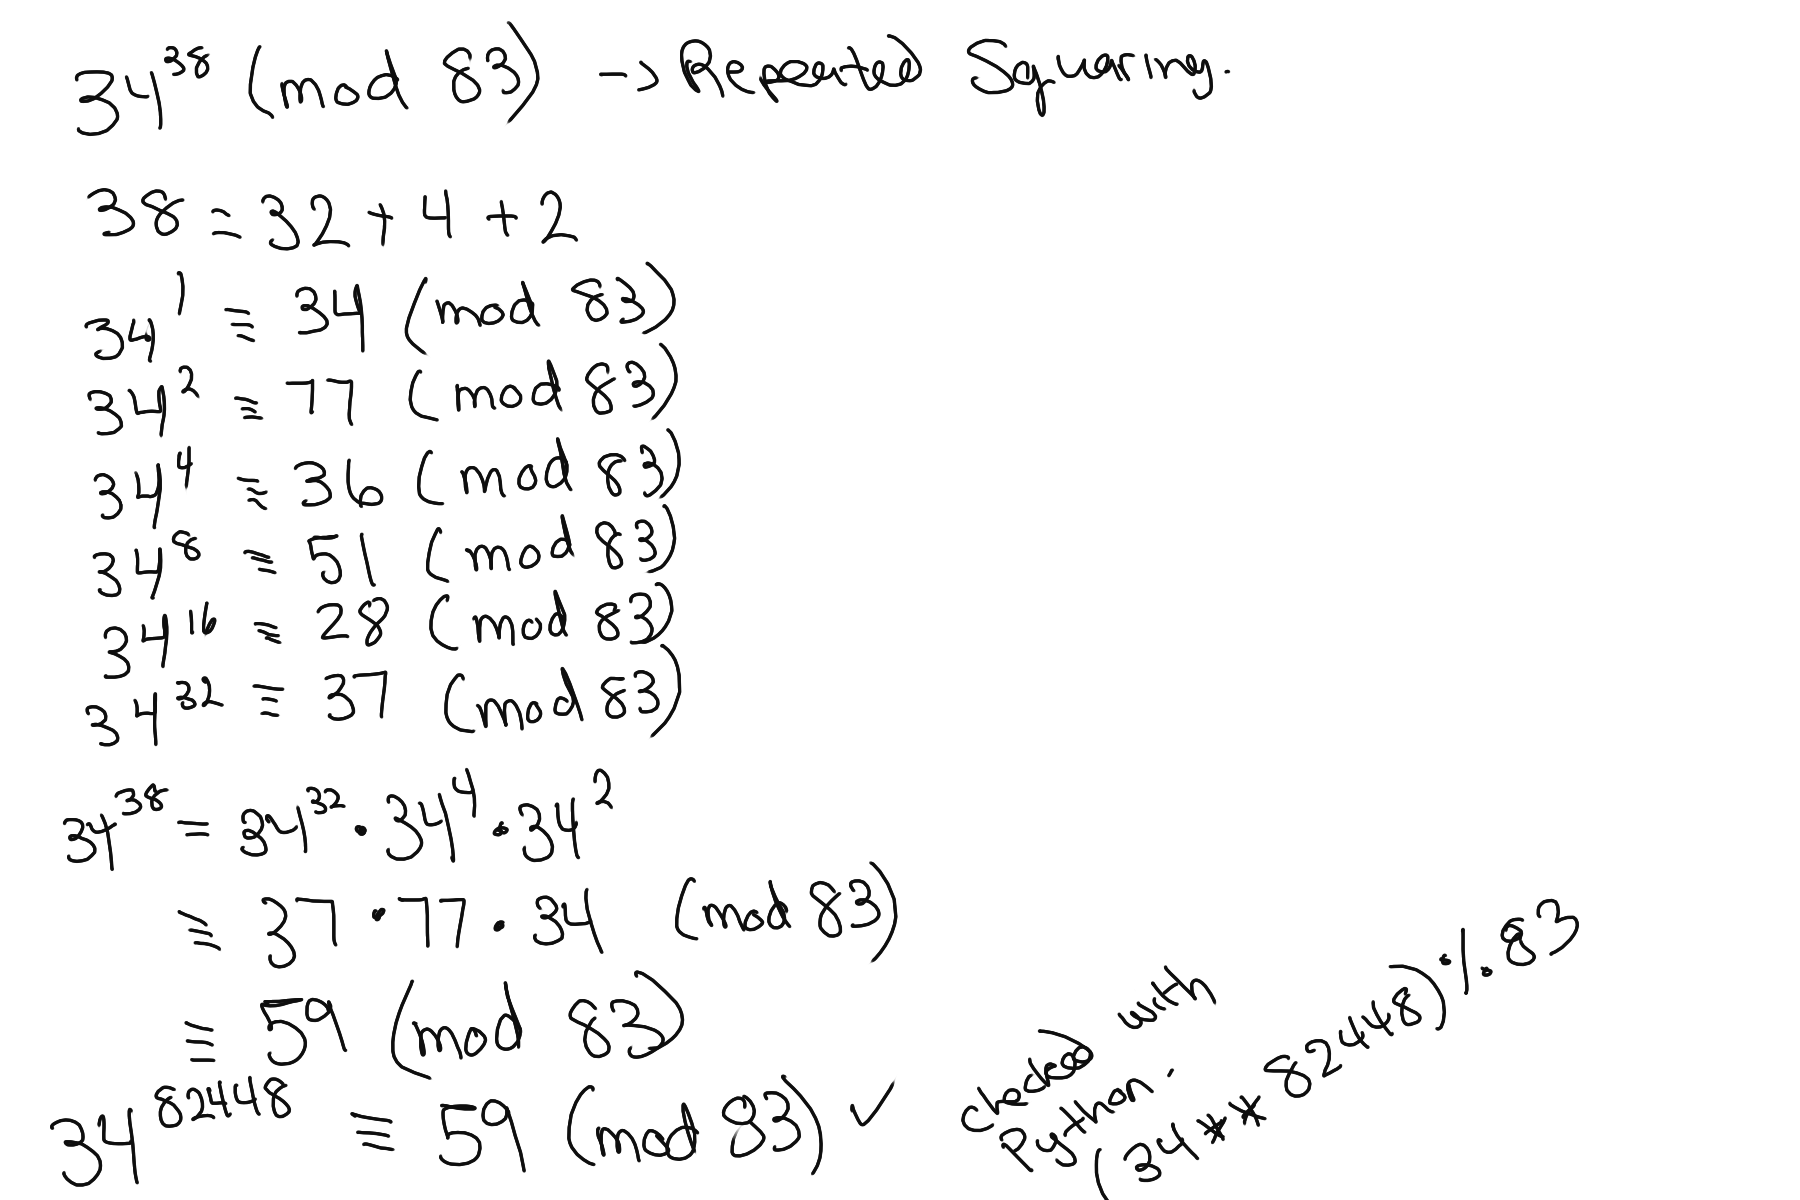 34^38 (mod 83) -> Repeated Squaring.
38 = 32 + 4 + 2
34^1 ≡ 34 (mod 83)
34^2 ≡ 77 (mod 83)
34^4 ≡ 36 (mod 83)
34^8 ≡ 51 (mod 83)
34^16 ≡ 28 (mod 83)
34^32 ≡ 37 (mod 83)
34^38 = 34^32 · 34^4 · 34^2
≡ 37 · 77 · 34 (mod 83)
≡ 59 (mod 83)
34^82448 ≡ 59 (mod 83) ✓
checked with
Python.
(34**82448)%83